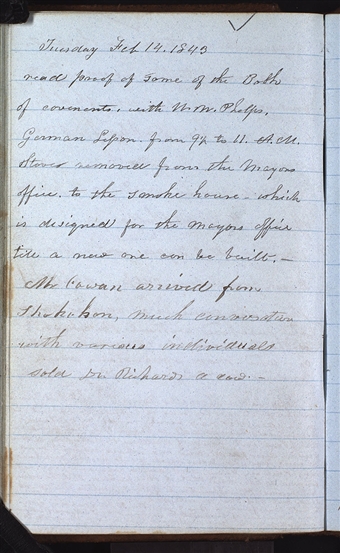 Tuesday Feb 14. 1843
read proof of some of the Doth
of covenants. with W. W. Phelps.
German Lesson. from 9½ to 11. A.M.
Stoves removed from the Mayors
office. to the smoke house - which
is designed for the mayors office
till a new one can be built. -
Mr Cowan arrived from
Shokokon, much conversation
with various individuals
sold Dr. Richards a cow. -